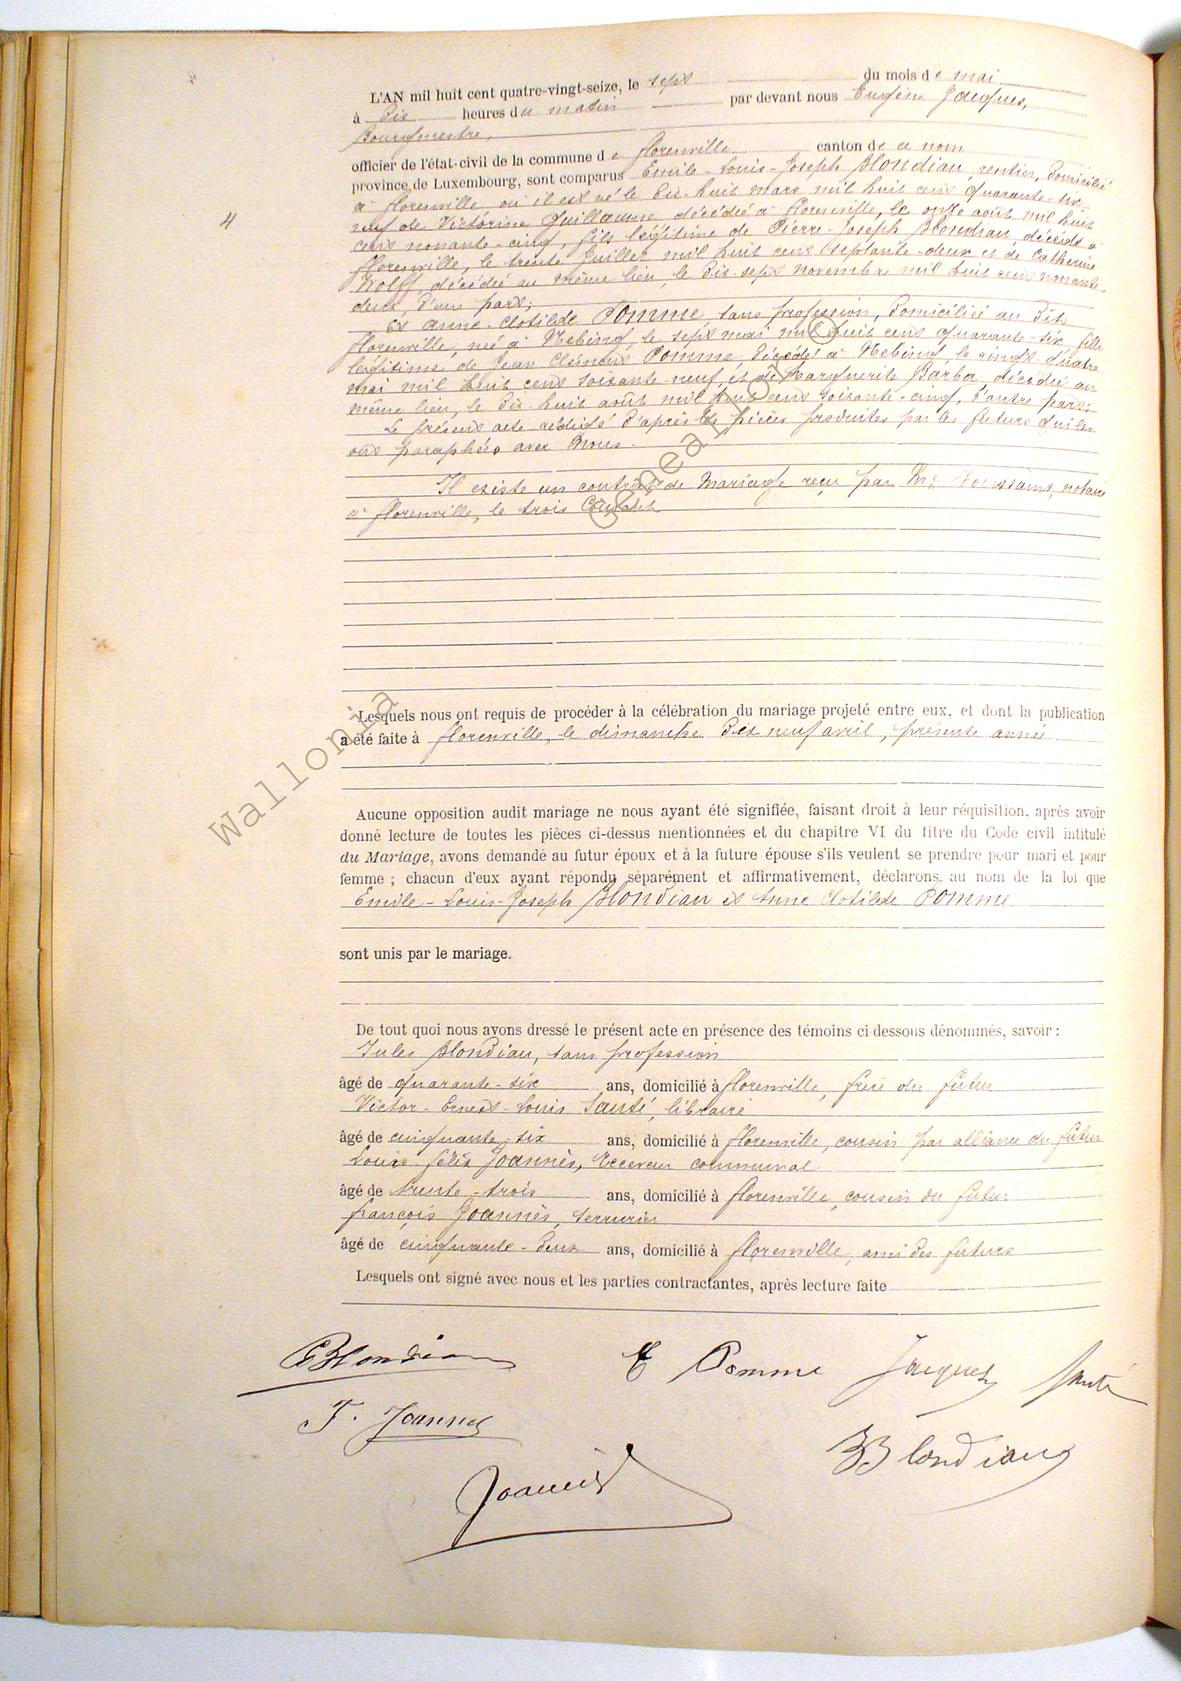 L'AN mil huit cent quatre-vingt-seize, le sept du mois de mai
à dix heures du matin par devant nous Eugène Jacques,
Bourgmestre,
officier de l'état-civil de la commune de Florenville canton de ce nom
province de Luxembourg, sont comparus Emile-Louis-Joseph Blondiau, rentier, domicilié
à Florenville où il est né le dix-huit mars mil huit cent quarante-six
veuf de Victorine Guillaume décédée à Florenville, le onze août mil huit
cent nonante-cinq, fils légitime de Pierre-Joseph Blondiau, décédé à
Florenville, le trente juillet mil huit cent septante-deux et de Catherine
Wolff, décédée au même lieu, le dix-sept novembre mil huit cent nonante-
deux, d'une part;
Et Anne-Clotilde Pomme sans profession, domiciliée au dit
Florenville, née à Hebing, le sept mai mil huit cent quarante-six, fille
légitime de Jean Clément Pomme, décédé à Hebing, le vingt-quatre
mai mil huit cent soixante-neuf, et de Marguerite Barba, décédée au
même lieu, le dix-huit août mil huit cent soixante-cinq, d'autre part;
Le présent acte rédigé d'après les pièces produites par les futurs qui les
ont paraphées avec Nous.
Il existe un contrat de Mariage reçu par Me notaire
à Florenville, le trois courant
4
Lesquels nous ont requis de procéder à la célébration du mariage projeté entre eux, et dont la publication
a été faite à Florenville, le dimanche dix neuf avril, présente année
Aucune opposition audit mariage ne nous ayant été signifiée, faisant droit à leur réquisition, après avoir
donné lecture de toutes les pièces ci-dessus mentionnées et du chapitre VI du titre du Code civil intitulé
du Mariage, avons demandé au futur époux et à la future épouse s'ils veulent se prendre pour mari et pour
femme ; chacun d'eux ayant répondu séparément et affirmativement, déclarons, au nom de la loi que
Emile-Louis-Joseph Blondiau et Anne Clotilde Pomme
sont unis par le mariage.
De tout quoi nous avons dressé le présent acte en présence des témoins ci-dessous dénommés, savoir :
Jules Blondiau, sans profession
âgé de quarante-six ans, domicilié à Florenville, frère du futur
Victor-Ernest-Louis Santé, libraire
âgé de cinquante-six ans, domicilié à Florenville, cousin par alliance du futur
Louis Félix Joannès, receveur communal
âgé de trente-trois ans, domicilié à Florenville, cousin du futur
François Joannès, serrurier
âgé de cinquante-deux ans, domicilié à Florenville, ami des futurs
Lesquels ont signé avec nous et les parties contractantes, après lecture faite
Blondiau C Pomme Jacques Santé
F. Joannes
Blondiau
Joannès
Wallonia Geneal